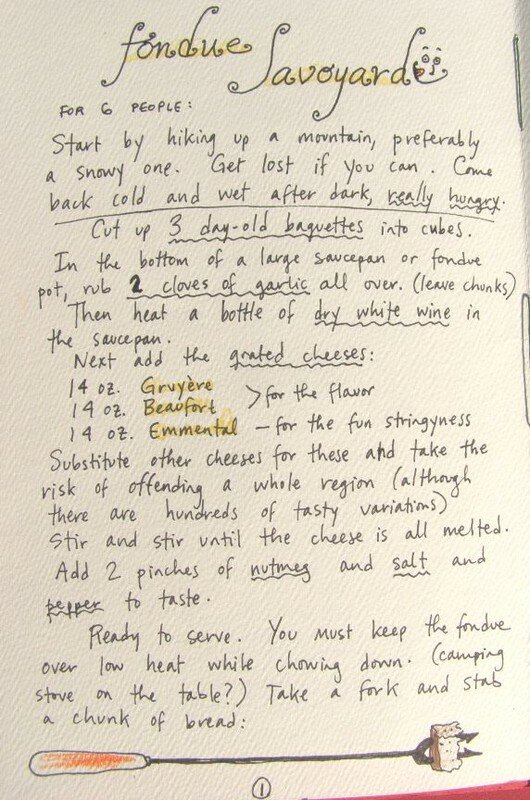 fondue
Savoyarde
FOR 6 PEOPLE:
Start by hiking up a mountain, preferably
a snowy one. Get lost if you can. Come
back cold and wet after dark, really hungry.
Cut up 3 day-old baguettes into cubes.
In the bottom of a large saucepan or fondue
pot, rub 2 cloves of garlic all over. (leave chunks)
Then heat a bottle of dry white wine in
the saucepan.
Next add the grated cheeses:
14 oz. Gruyère
14 oz. Beaufort >for the flavor
14 oz. Emmental – for the fun stringyness
Substitute other cheeses for these and take the
risk of offending a whole region (although
there are hundreds of tasty variations)
Stir and stir until the cheese is all melted.
Add 2 pinches of nutmeg and salt and
pepper to taste.
Ready to serve. You must keep the fondue
over low heat while chowing down. (camping
stove on the table?) Take a fork and stab
a chunk of bread:
1